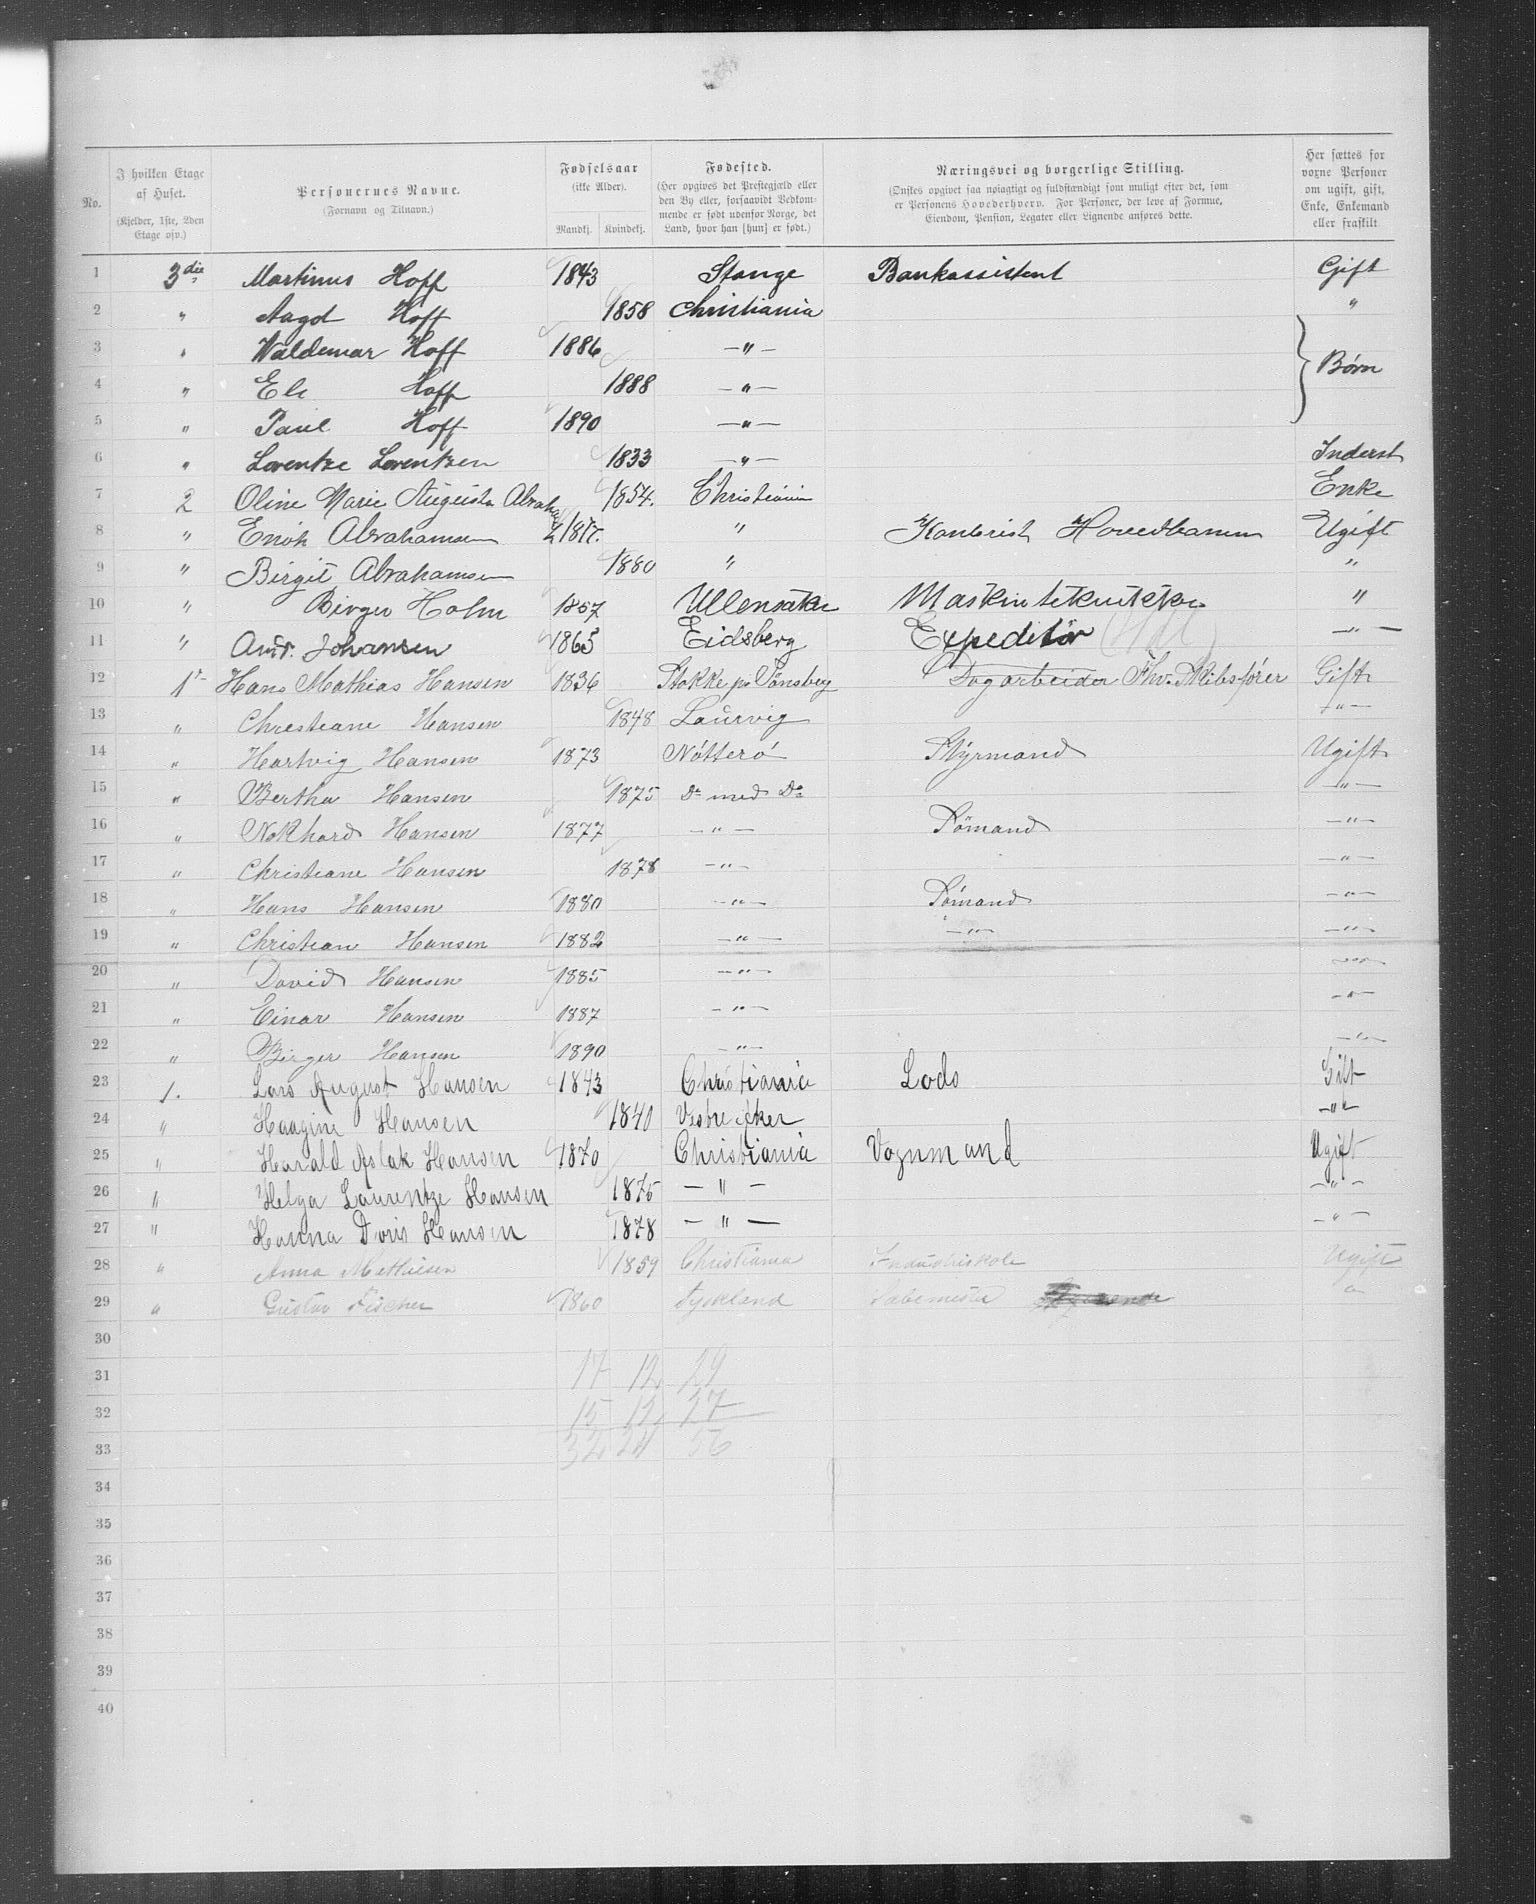 No. | I hvilken Etage af Huset. (Kjelder, 1ste, 2den Etage osv.) | Personernes Navne. (Fornavn og Tilnavn.) | Fødselsaar (ikke Alder). Mandkj. Kvindekj. | Fødested. (Her opgives det Prestegjæld eller den By eller, forsaavidt Vedkommende er født udenfor Norge, det Land, hvor han [hun] er født.) | Næringsvei og borgerlige Stilling. (Ønskes opgivet saa nøiagtigt og fuldstændigt som muligt efter det, som er Personens Hovederhverv. For Personer, der leve af Formue, Eiendom, Pension, Legater eller Lignende anføres dette. | Her sættes for voxne Personer om ugift, gift, Enke, Enkemand eller fraskilt
1 3die Martinus Hoff 1843 Stange Bankassistent Gift
2 " Aagot Hoff 1858 Christiania "
3 " Waldemar Hoff 1886 —"—
4 " Hoff 1888 —"— Børn
5 " Paul Hoff 1890 —"—
6 " Lorentze Lorentzen 1833 —"— Inderst
7 2 Oline Marie Augusta 1854. Christiania Enke
8 " Enok Abrahamsen 1877. " Kontorist Hovedbanen Ugift
9 " Birgit Abrahamsen 1880 " "
10 " Birger Holm 1857 Ullensaker "
11 " Johansen 1865 Eidsberg Expeditør —"—
12 1 Hans Mathias Hansen 1836 Stokke pr Tønsberg Dagarbeider Fhv. Skibsfører Gift
13 " Chrestiane Hansen 1848 Laurvig —"—
14 " Hartvig Hansen 1873 Nötterö Styrmand Ugift
15 " Bertha Hansen 1875 Do med Do —"—
16 " Hansen 1877 —"— Sömand —"—
17 " Christiane Hansen 1878 —"— —"—
18 " Hans Hansen 1880 —"— Sömand —"—
19 " Christian Hansen 1882 —"— —"— —"—
20 " David Hansen 1885 —"— —"—
21 " Einar Hansen 1887 —"— —"—
22 " Birger Hansen 1890 —"— —"—
23 1. Lars August Hansen 1843 Christiania Lods Gift
24 " Haagine Hansen 1840 Vestre Aker —"—
25 " Harald Aslak Hansen 1870 Christiania Vognmand Ugift
26 " Helga Laurentze Hansen 1875 —"— —"—
27 " Hanna Doris Hansen 1878 —"— —"—
28 " Anna Mathisen 1859 Christiania Industriskole Ugift
29 " Gustav Fischer 1860 Tyskland "
30
31 17 12 29
32 15 12 27
33 32 24 56
34
35
36
37
38
39
40